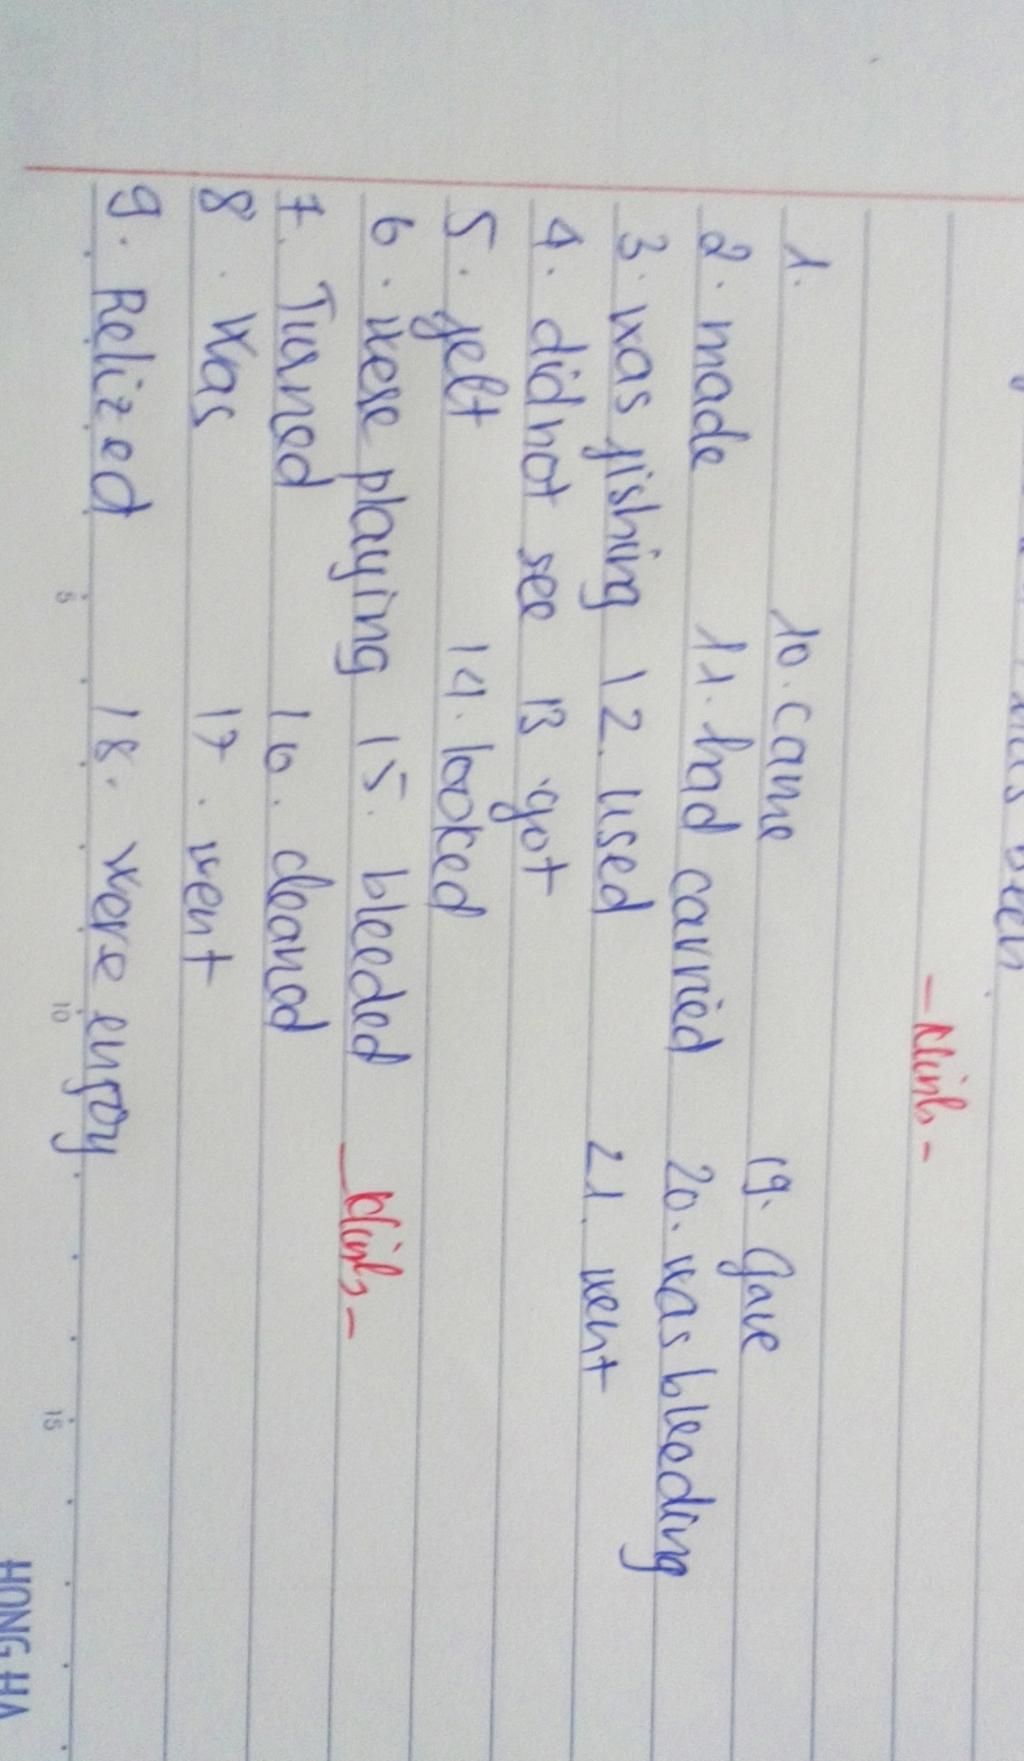 been
- Ninh -
1. 10. came 19. Gave
2. made 11. had carried 20. was bleeding
3. was fishing 12. used 21. went
4. did not see 13. got
5. felt 14. looked
6. were playing 15. bleeded - Ninh -
7. Turned 16. cleaned
8. Was 17. went
9. Relized 18. were enjoy
5 10 15
HONG HA